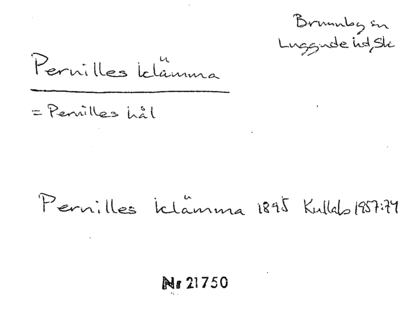 Brunnby sn
Luggude hd, Sk
Pernilles klämma
= Pernilles hål
Pernilles klämma 1895 Kullab 1957:74
Nr 21750